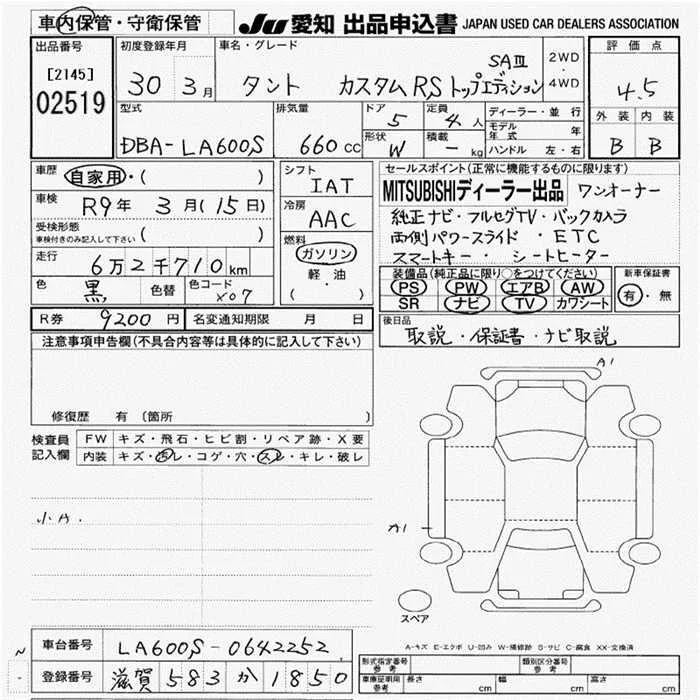 車内保管・守衛保管 JU 愛知 出品申込書 JAPAN USED CAR DEALERS ASSOCIATION
出品番号 [2145] 02519
初度登録年月 30 3月
車名・グレード タント カスタムRSトップエディション SAⅢ 2WD ・ 4WD
評価点 4.5
外装 内装
B B
型式 DBA-LA600S
排気量 660 cc
ドア 5
定員 4人
形状 W
積載 - kg
ディーラー・並行
モデル年式 年
ハンドル 左・右
車歴 自家用・( )
車検 R9年 3月(15日)
受検形態 車検付きのみ記入して下さい ( )
走行 6万2千710km
色 黒 色替 色コード X07
シフト IAT
冷房 AAC
燃料 ガソリン
軽・油
( )
セールスポイント(正常に機能するものに限ります)
MITSUBISHIディーラー出品 ワンオーナー
純正ナビ・フルセグTV・バックカメラ
両側パワースライド・ETC
スマートキー・シートヒーター
装備品(純正品に限り○をつけてください)
PS PW エアB AW
SR ナビ TV カワシート
新車保証書
有・無
R券 9200円 名変通知期限 月 日
後日品
取説・保証書・ナビ取説
注意事項申告欄(不具合内容等は具体的に記入して下さい)
修復歴 有 (箇所 )
検査員記入欄
FW キズ・飛石・ヒビ割・リペア跡・X要
内装 キズ・汚レ・コゲ・穴・スレ・キレ・破レ
小A.
A1
A1
スペア
A-キズ E-エクボ U-凹み W-補修跡 S-サビ C-腐食 XX-交換済
車台番号 LA600S-0642252
登録番号 滋賀583か1850
型式指定番号 参考
類別区分番号 参考
車庫証明用 参考 長さ cm 幅 cm 高さ cm